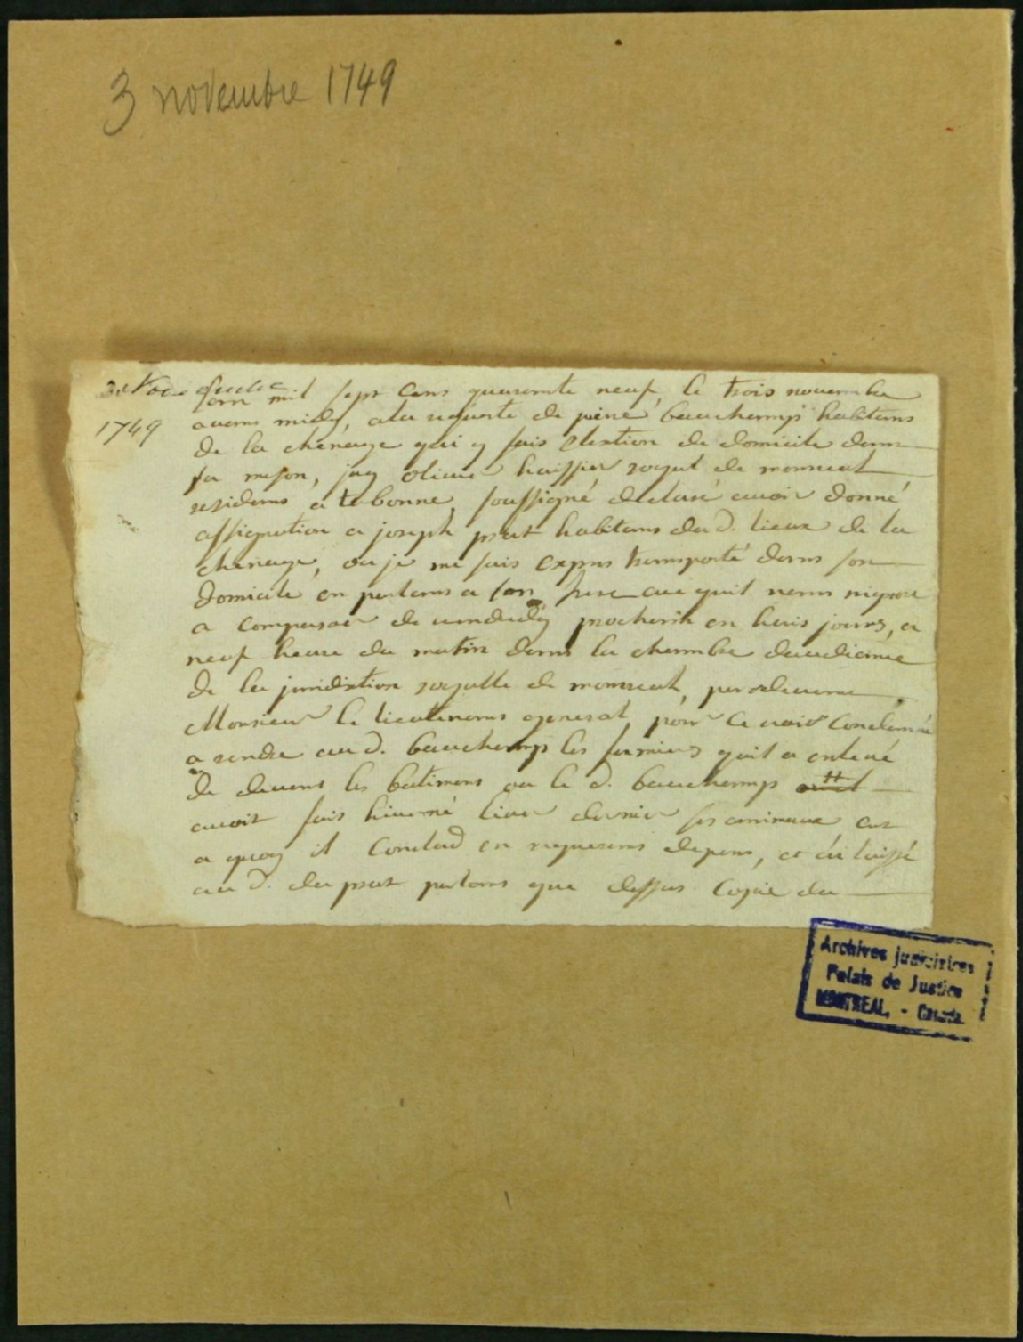 3 novembre 1749
1749
Lan mil sept cens quarente neuf, le trois novembre
avens midy, a la requeste de piere beauchamps habitans
de la chenaye qui y fais Elextion de domicile dans
sa meson, jay olivier huissier royal de monreal
residens a te bonne, soussigné declare avoir donné
assignation a joseph prat habitans du d. lieux de la
chenaye, ou je me suis expres transporté dans son
domicile en parlans a son frere ace quil nenn nignore
a comparoir de vendredy prochein en huis jours, a
neuf heure du matin dans la chambre daudiance
de la juridixtion royalle de monreal, par devans
Monsieur le lieutenans general, pour ce voir Condamné
a rendre au d. beauchamps les fumiers quil a enlevé
de devans les batimens ou le d. beauchamps
avoit fais hiverné liver dernier ses animaux
a quoy il Conclud en requerens depens, et ai laissé
au d. du prat parlans que dessus Copie du
Archives judiciaires
Palais de Justice
MONTREAL, - Canada